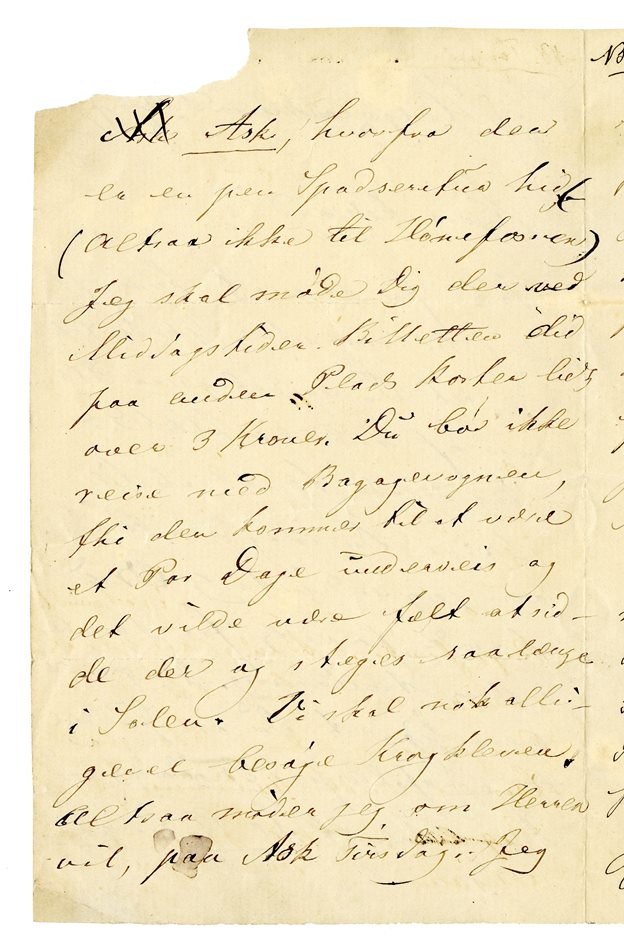 Ask, hvorfra der
er en pen Spadsertur hid
(altsaa ikke til Hønefossen.)
Jeg skal møde Dig der ved
Middagstider. Billetten did
paa anden Plads koster lidt
over 3 Kroner. Du bør ikke
reise med Bagagevognen,
thi den kommer til at være
et Par Dage underveis og
det vilde være fælt at sid-
de der og steges saa længe
i Solen. Vi skal nok alli-
gevel besøge Krogkleven,
altsaa møder jeg, om Herren
vil, paa Ask Tirsdag. Jeg